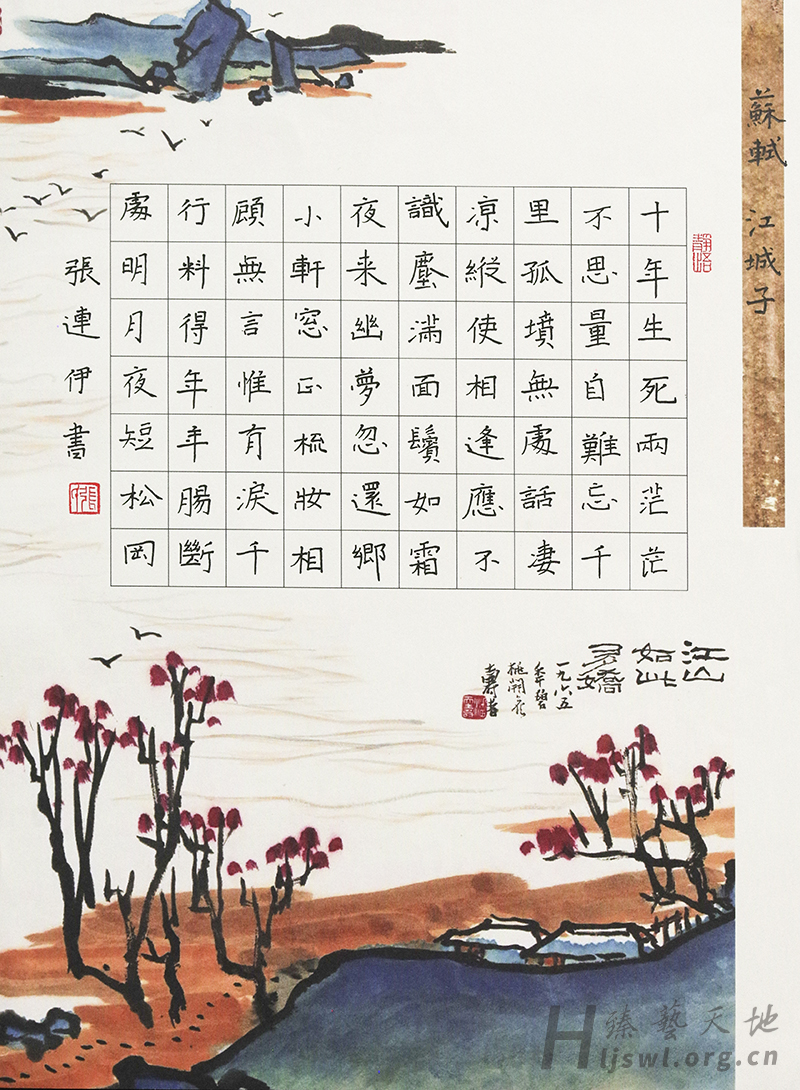 蘇軾 江城子
十年生死兩茫茫
不思量自難忘千
里孤墳無處話凄
凉縱使相逢應不
識塵滿面鬢如霜
夜来幽夢忽還鄉
小軒窓正梳妝相
顧無言惟有淚千
行料得年年腸斷
處明月夜短松岡
張連伊書
江山
如此
多嬌
一九六五
年
臻藝天地
Hljswl.org.cn